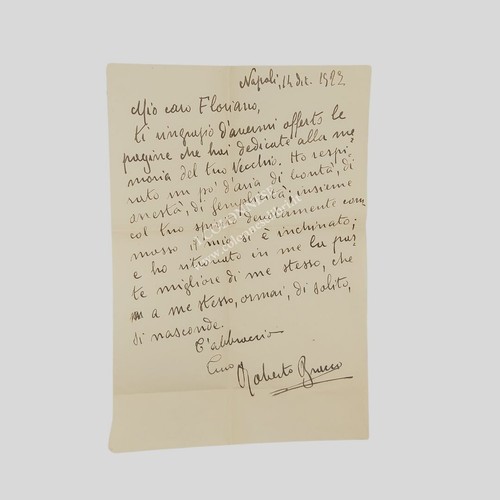 Napoli, 14 dic. 1922
Mio caro Floriano,
ti ringrazio d'avermi offerto le
pagine che hai dedicate alla me-
moria del tuo Vecchio. Ho respi-
rato un po' d'aria di bontà, di
onestà, di semplicità; insieme
col tuo spirito devotamente com-
mosso il mio si è inchinato;
e ho ritrovato in me la par-
te migliore di me stesso, che
a me stesso, ormai, di solito,
si nasconde.
T'abbraccio
Tuo Roberto Bracco